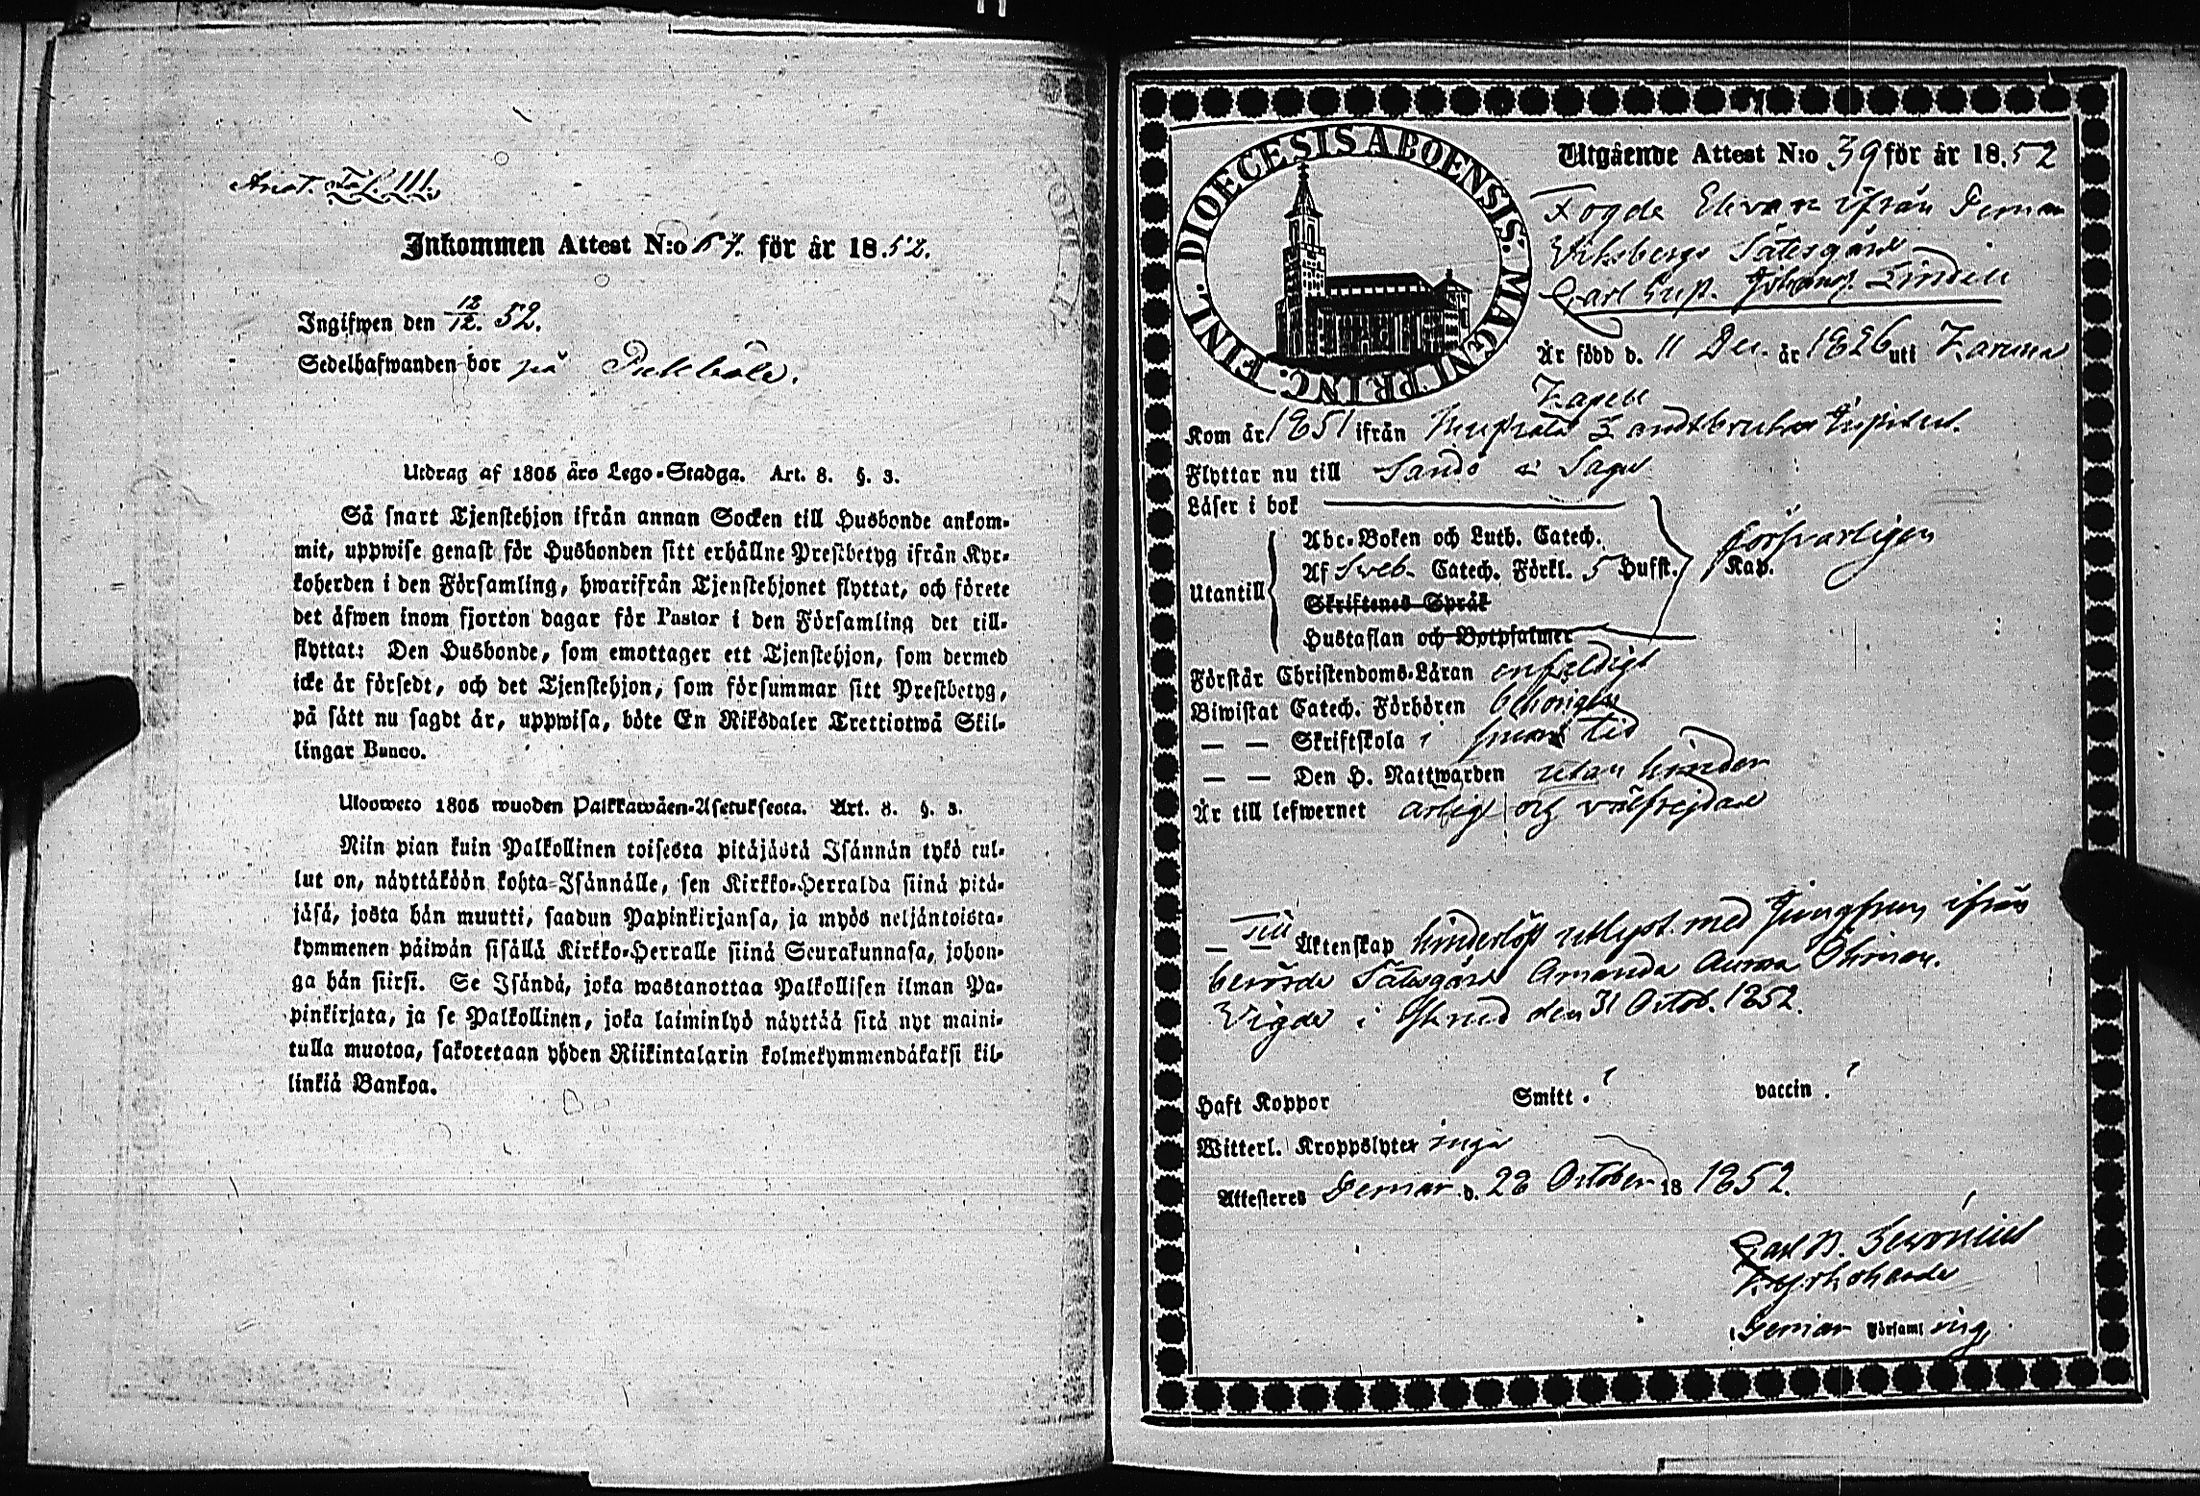 Anot. Tal. III.
Inkommen Attest N:o 57. för år 1852.
Ingifwen den 12/12. 52.
Sedelhafwanden bor på
Utdrag af 1805 års Lego-Stadga. Art. 8. §. 3.
Så snart Tjenstehjon ifrån annan Socken till Husbonde ankom-
mit, uppwise genast för Husbonden sitt erhållne Prestbetyg ifrån Kyr-
koherden i den Församling, hwarifrån Tjenstehjonet flyttat, och förete
det äfwen inom fjorton dagar för Pastor i den Församling det till-
flyttat: Den Husbonde, som emottager ett Tjenstehjon, som dermed
icke är försedt, och det Tjenstehjon, som försummar sitt Prestbetyg,
på sätt nu sagdt är, uppwisa, böte En Riksdaler Trettiotwå Skil-
lingar Banco.
Ulosweto 1805 wuoden Palkkawäen-Asetuksesta. Art. 8. §. 3.
Niin pian kuin Palkollinen toisesta pitäjästä Isännän tykö tul-
lut on, näyttäköön kohta Isännälle, sen Kirkko-Herralda siinä pitä-
jäsä, josta hän muutti, saadun Papinkirjansa, ja myös neljäntoista-
kymmenen päiwän sisällä Kirkko-Herralle siinä Seurakunnasa, johon-
ga hän siirsi. Se Isändä, joka wastanottaa Palkollisen ilman Pa-
pinkirjata, ja se Palkollinen, joka laiminlyö näyttää sitä nyt maini-
tulla muotoa, sakotetaan yhden Riikintalarin kolmekymmendäkaksi kil-
linkiä Bankoa.
DIOECESIS ABOENSIS. MAGNI PRINC. FINL.
Utgående Attest N:o 39 för år 1852
Fogde Eleven ifrån Pemar
Wiksbergs Sätesgård
Carl Gust. Johans. Lindell
Är född d. 11 Dec. år 1826 uti Karuna
Kapell
Kom år 1851 ifrån Mustiala Landtbruks Institut.
Flyttar nu till Sandö i Sagu
Läser i bok
Abc-Boken och Luth. Catech.
Af Sveb. Catech. Förkl. 5 Hufst. Kap. försvarligen
Utantill
Skriftenes Språk
Hustaflan och Botpsalmer
Förstår Christendoms-Läran enfaldigt
Biwistat Catech. Förhören behörigen
— — Skriftskola i sinom tid
— — Den H. Nattwarden utan hinder
Är till lefwernet ärligt och välfrejdad
— — Till Äktenskap hinderlöst utlyst med Jungfrun ifrån
berörde Sätesgård Amanda Aurora Öhman.
Vigde i Åbo med den 31 Octob. 1852.
Haft Koppor Smitt. vaccin.
Witterl. Kroppslyter inga
Attesteras Pemar d. 28 October 18 1852.
Carl B.
Kyrkoherde
i Pemar Församling.